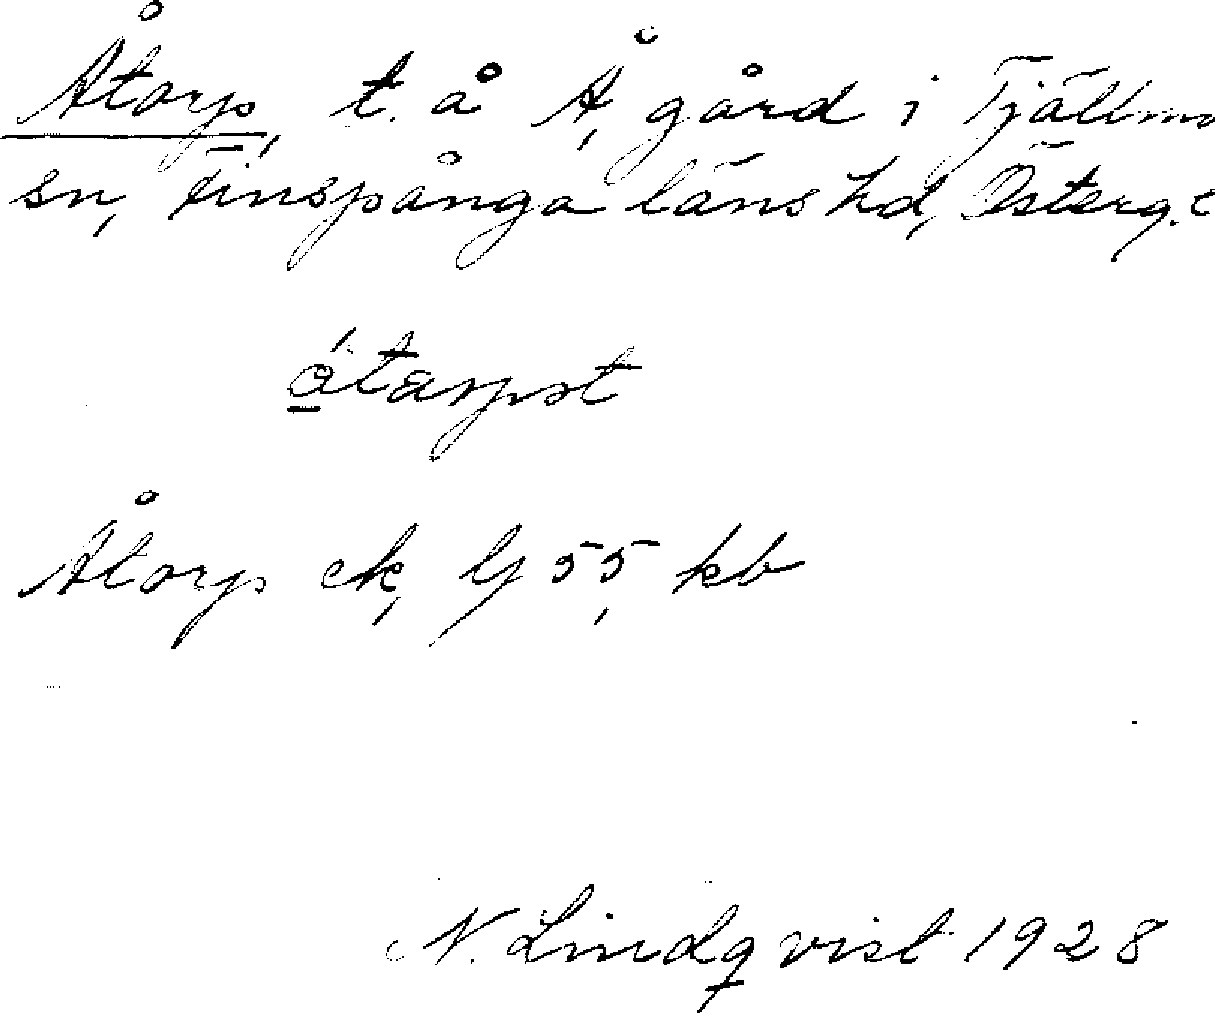 Åtorp, t. å Å, gård i Tjällmo
sn, Finspånga läns hd, Österg.
åtarpst
Åtorp ek, Lj 55, kb
N. Lindqvist 1928